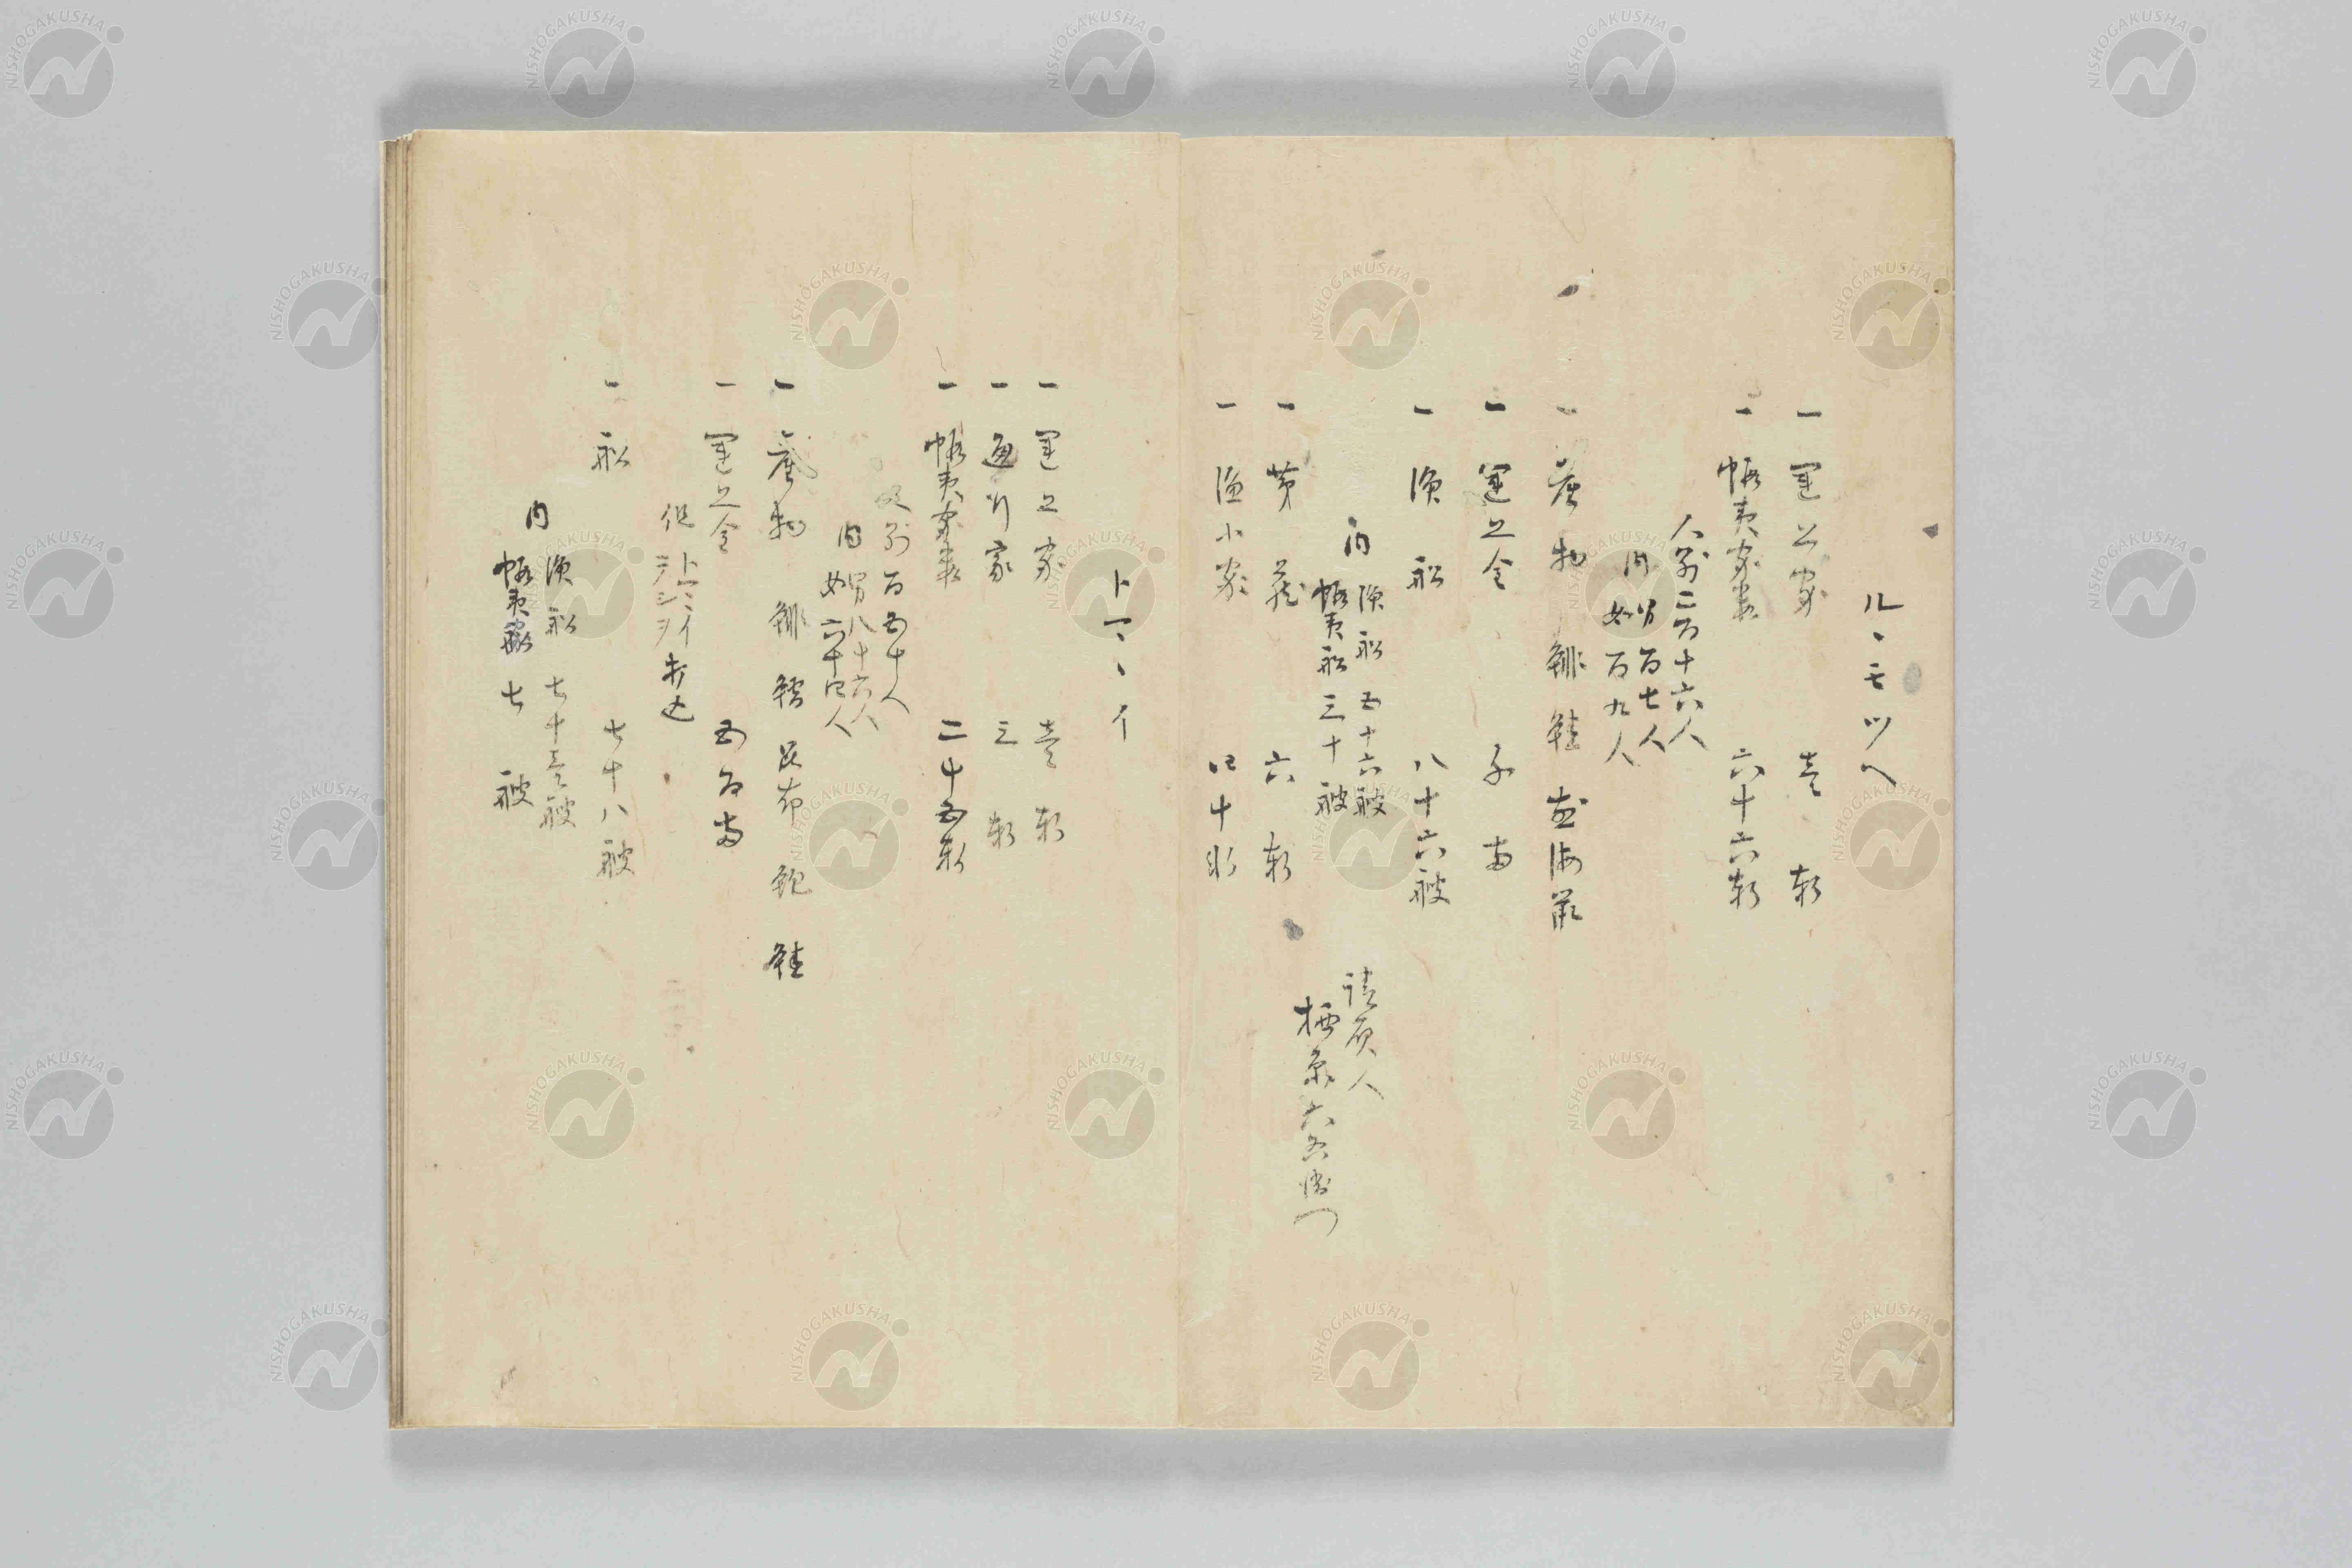 ルヽモツヘ
一運上家 壱軒
一蝦夷家数 六十六軒
人別二百十六人
内 男百七人
女百九人
一産物 鯡 鮭 海鼠
一運上金 千両
一漁船 八十六艘
内 漁船 五十六艘
蝦夷船 三十艘
一茅蔵 六軒
一漁小家 四十軒
請負人
栖原六右衛門
トママイ
一運上家 壱軒
一通行家 三軒
一蝦夷家数 二十五軒
人別百五十人
内 男八十六人
女六十四人
一産物 鯡 鱈 昆布 鮑 鮭
一運上金 五百両
但 トママイ
一船 七十八艘
内 漁船 七十壱艘
蝦夷船 七艘
NISHOGAKUSHA